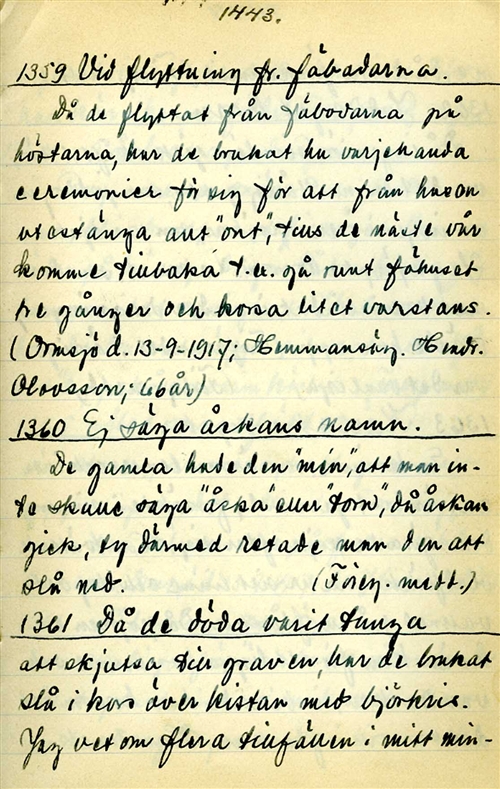 1443.
1359 Vid flyttning fr. fäbodarna.
Då de flyttat från fäbodarna på
höstarna, har de brukat ha varjehanda
ceremonier för sig för att från husen
utestänga allt "ont", tills de näste vår
komme tillbaka t.ex. gå runt fähuset
tre gånger och korsa litet varstans.
(Ormsjö d. 13-9-1917; Hemmansäg. Hendr.
Olovsson; 66 år)
1360 Ej säga åskans namn.
De gamla hade den "men", att man in-
te skulle säga "åska" eller "torn", då åskan
gick, ty därmed retade man den att
slå ned. (Föreg. medd.)
1361 Då de döda varit tunga
att skjutsa till graven, har de brukat
slå i kors över kistan med björkris.
Jag vet om flera tillfällen i mitt min-